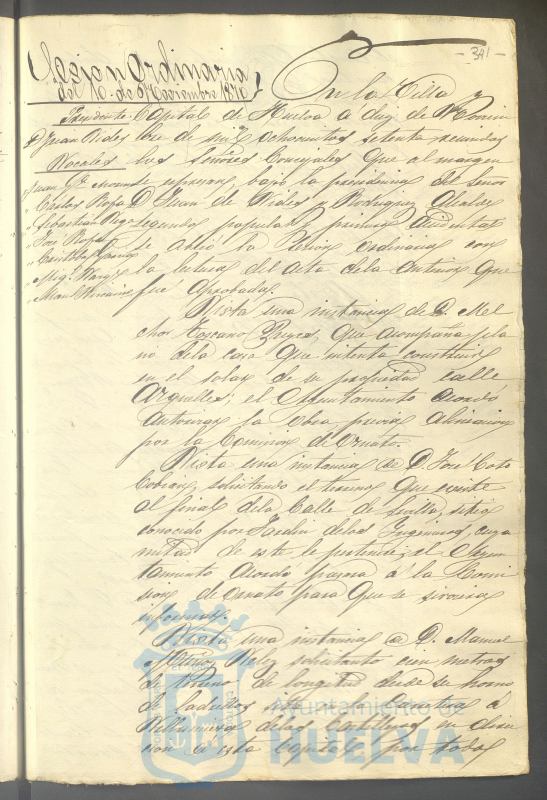 341
Sesion Ordinaria
del 10 de Noviembre 1870
En la Villa y
Presidente Capital de Huelva a diez de Noviem
D. Juan Vides bre de mil ochocientos setenta reunidos
Vocales los Señores Concejales que al margen
Juan espresan, bajo la presidencia del Señor
Carlos Rofa D. Juan de Vides y Rodriguez Alcalde
Sebastian segundo popular y primero accidental
Jose Rofa se abrió la sesion ordinaria con
la lectura del acta de la anterior que
Man fué aprobada.
Vista una instancia de D. Mel
chor Toscano que acompaña pla
no de la casa que intenta construir
en el solar de su propiedad calle
Arguelles; el Ayuntamiento acordó
autorizar la obra previa alineacion
por la Comision de Ornato.
Vista una instancia de D. Jose Coto
Cobian, solicitando el terreno que existe
al final de la Calle de Sevilla, sitio
conocido por Jardin de los Ingleses, cuya
mitad de este le pertenece; el Ayun
tamiento acordó pasara á la Comi
sion de Ornato para que se sirviera
informar.
Vista una instancia de D. Manuel
Muñoz Velez solicitando cien metros
de terreno de longitud desde su horno
de ladrillos en la Carretera á
de los Castillejos en direc
cion á esta Capital por todos
Ayuntamiento de
HUELVA